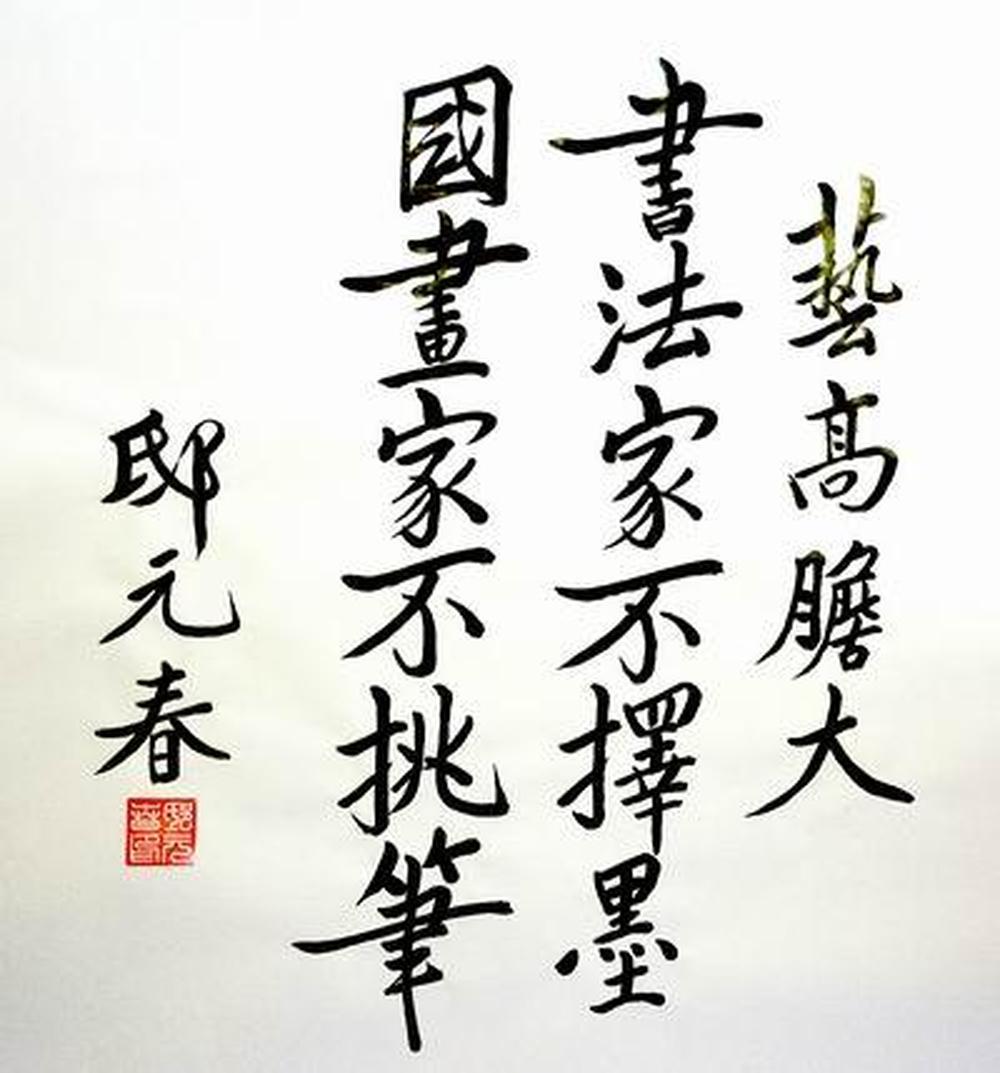 藝高膽大
書法家不擇墨
國畫家不挑筆
邸元春
邸元春印